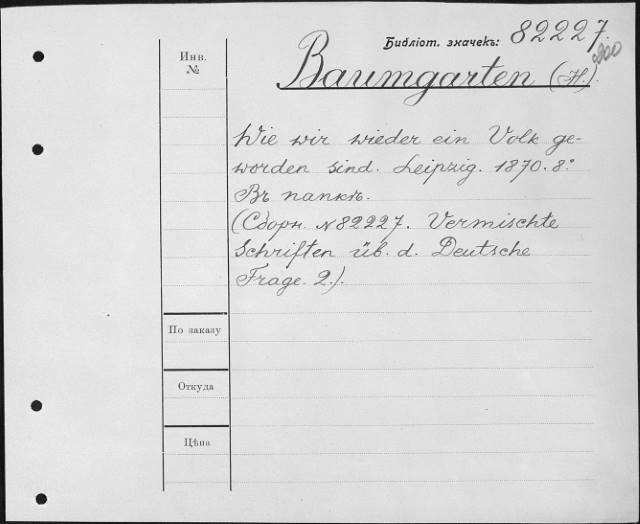 Библіот. значекъ: 82227.
200
Baumgarten (H.)
Инв.
№
Wie wir wieder ein Volk ge-
worden sind. Leipzig. 1870. 8.°
Въ папкѣ.
(Сборн. № 82227. Vermischte
Schriften üb. d. Deutsche
Frage. 2.).
По заказу
Откуда
Цѣна